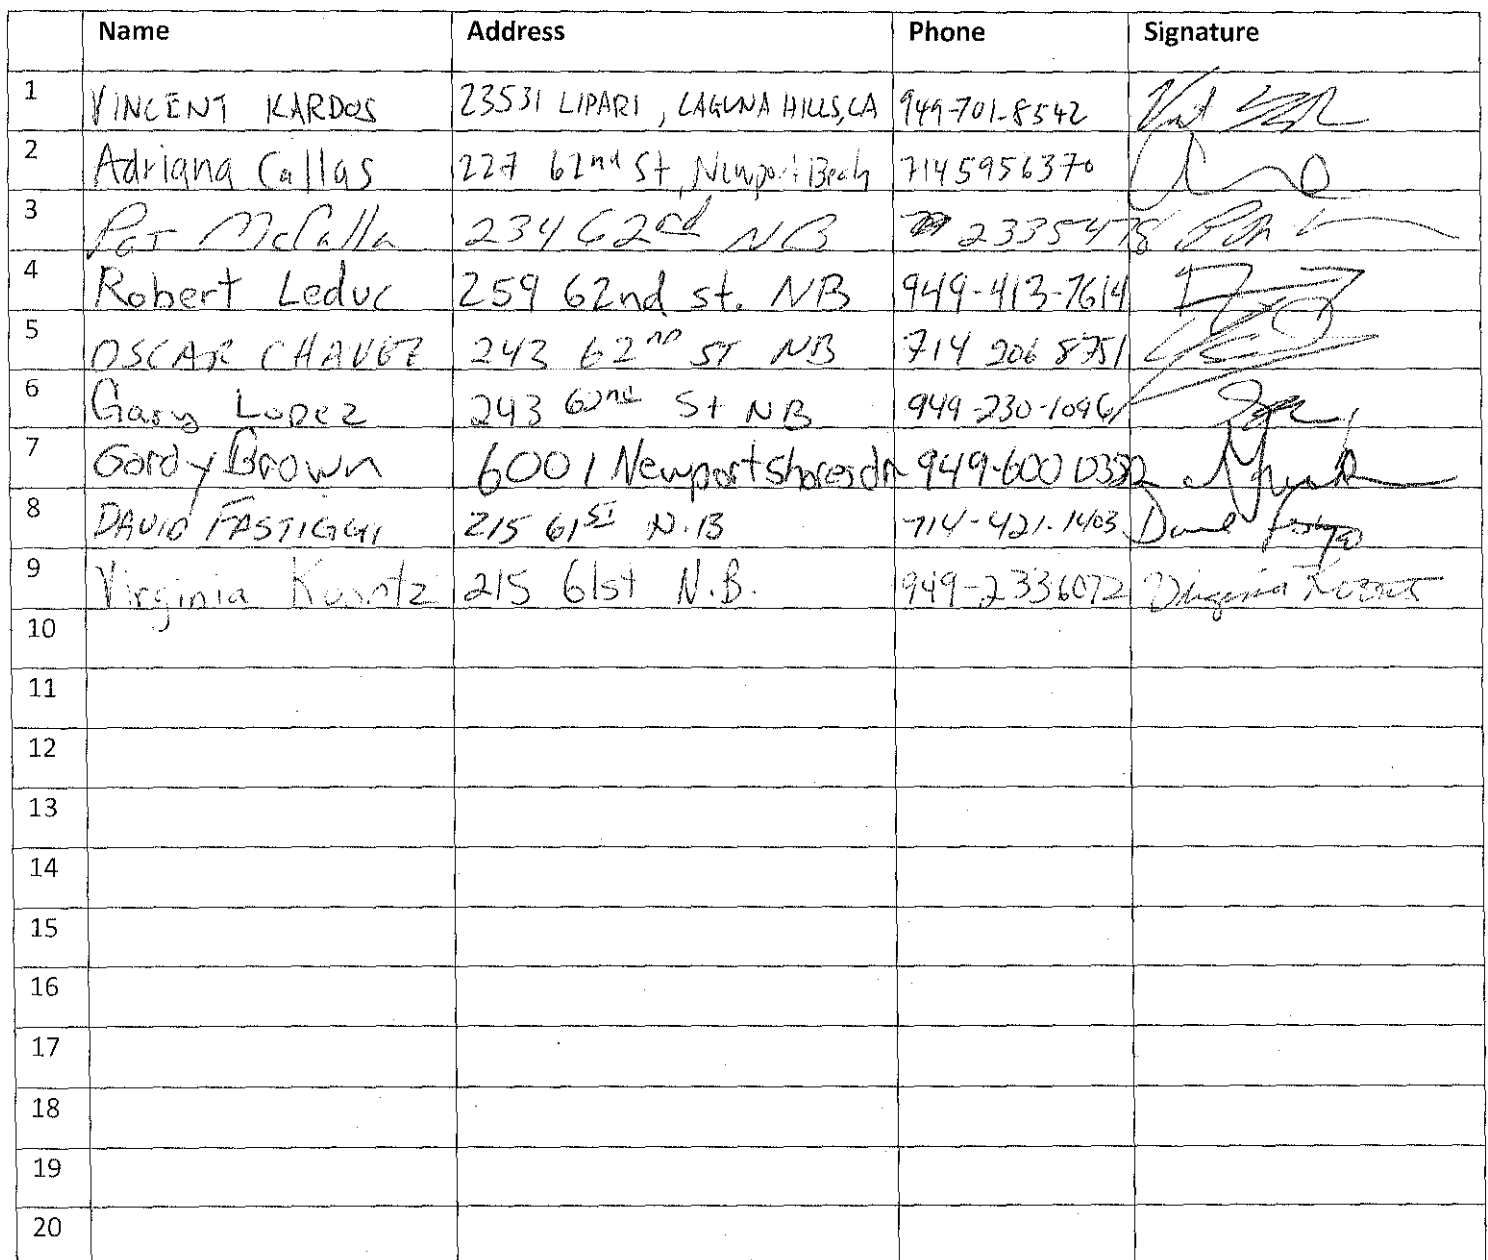 Name Address Phone Signature
1 VINCENT KARDOS 23531 LIPARI, LAGUNA HILLS, CA 949-701-8542
2 Adriana Callas 227 62nd St, Newport Beach 7145956370
3 Pat McCalla 234 62nd NB 2335478
4 Robert Leduc 259 62nd st. NB 949-413-7614
5 OSCAR CHAVEZ 243 62nd ST NB 714 206 8751
6 Gary Lopez 243 62nd St NB 949-230-1096
7 Gordy Brown 6001 Newportshores dr 949-600 0352
8 DAVID FASTIGGI 215 61ST N.B 714-421-1403
9 Virginia Koontz 215 61st N.B. 949-2336072 Virginia Koontz
10
11
12
13
14
15
16
17
18
19
20